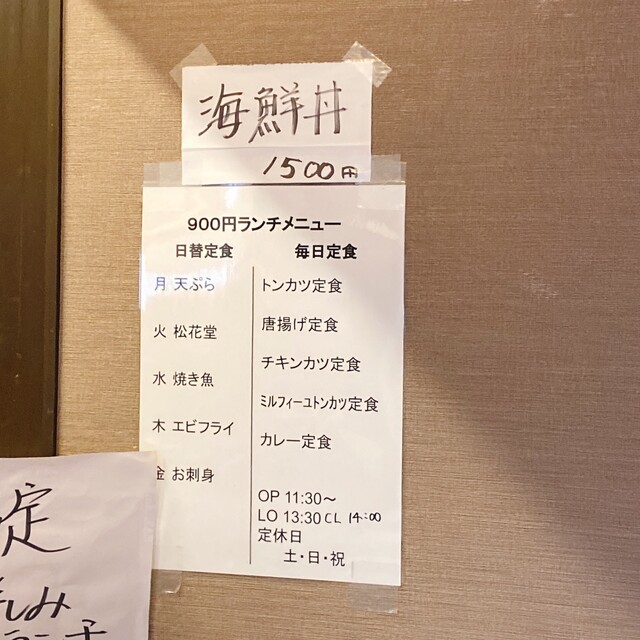 海鮮丼
1500円
900円ランチメニュー
日替定食
月 天ぷら
火 松花堂
水 焼き魚
木 エビフライ
金 お刺身
毎日定食
トンカツ定食
唐揚げ定食
チキンカツ定食
ミルフィーユトンカツ定食
カレー定食
OP 11:30～
LO 13:30 CL 14:00
定休日
土・日・祝
定
しみ